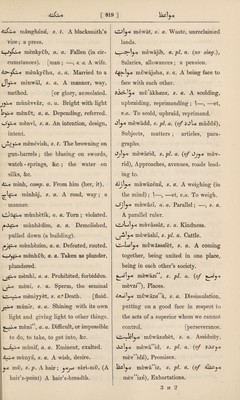 منكنه
[ 819 ]
مواعظ
منكنه mángháné, s. t. A blacksmith's
vice; a press.
منكوب menkyūb, a. a. Fallen (in cir-
cumstances), (man; —, s. a. A wife.
منكوحه menkyūhe, a. a. Married to a
منوال minwāl, s. a. A manner, way,
method. [or glory, acmolated.
منور münévvér, a. a. Bright with light
منوط menūt, a. a. Depending, referred.
منوى menvī, s. a. An intention, design,
intent.
منويش ménévish, s. t. The browning on
gun-barrels; the bluing on swords,
watch-springs, &c.; the water on
silks, &c.
منه minh, comp. a. From him (her, it).
منهاج minhāj, s. a. A road, way; a
manner.
منهتك münhètik, a. a. Torn; violated.
منهدم münhèdim, a. a. Demolished,
pulled down (a building).
منهزم münhèzim, a. a. Defeated, routed.
منهوب menhūb, a. a. Taken as plunder,
plundered.
منهى menhī, a. a. Prohibited, forbidden.
منى menī, s. a. Sperm, the seminal
منيت ménīyyét, s. a. Death. [fluid.
منير münīr, a. a. Shining with its own
light and giving light to other things.
منيع menī', a. a. Difficult, or impossible
to do, to take, to get into, &c.
منيف münīf, a. a. Eminent, exalted.
منيه münyé, s. a. A wish, desire.
مو mū, s. p. A hair; سر مو sèri-mū, (A
hair's-point) A hair's-breadth.
موات mèwāt, s. a. Waste, unreclaimed
lands.
مواجب mèwājib, s. pl. a. (no sing.),
Salaries, allowances; a pension.
مواجهه müwājehe, s. a. A being face to
face with each other.
مؤاخذه mü'ākhéze, s. a. A scolding,
upbraiding, reprimanding; 1—, —et,
v.a. To scold, upbraid, reprimand.
مواد mèwādd, s. pl. a. (of ماده māddé),
Subjects, matters; articles, para-
graphs.
موارد mèwārid, s. pl. a. (of مورد mèv-
rid), Approaches, avenues, roads lead-
ing to.
موازنه müwāzéné, s. a. A weighing (in
the mind); 1—, —et, v.a. To weigh.
موازى müwāzī, a. a. Parallel; —, s. a.
A parallel ruler.
مواسات müwāsāt, s. a. Kindness.
مواشى mèwāshī, s. pl. a. Cattle.
مواصلت müwāssalèt, s. a. A coming
together, being united in one place,
being in each other's society.
مواضع mèwāzi', s. pl. a. (of موضع
mèvzi'), Places.
مواضعه müwāza'a, s. a. Dissimulation,
putting on a good face in respect to
the acts of a superior whom we cannot
control. [perseverance.
مواظبت müwāzabèt, s. a. Assiduity,
مواعد mèwā'id, s. pl. a. (of موعده
mèv'idé), Promises.
مواعظ mèwā'iz, s. pl. a. (of موعظه
mèv'izé), Exhortations.
3 M 2